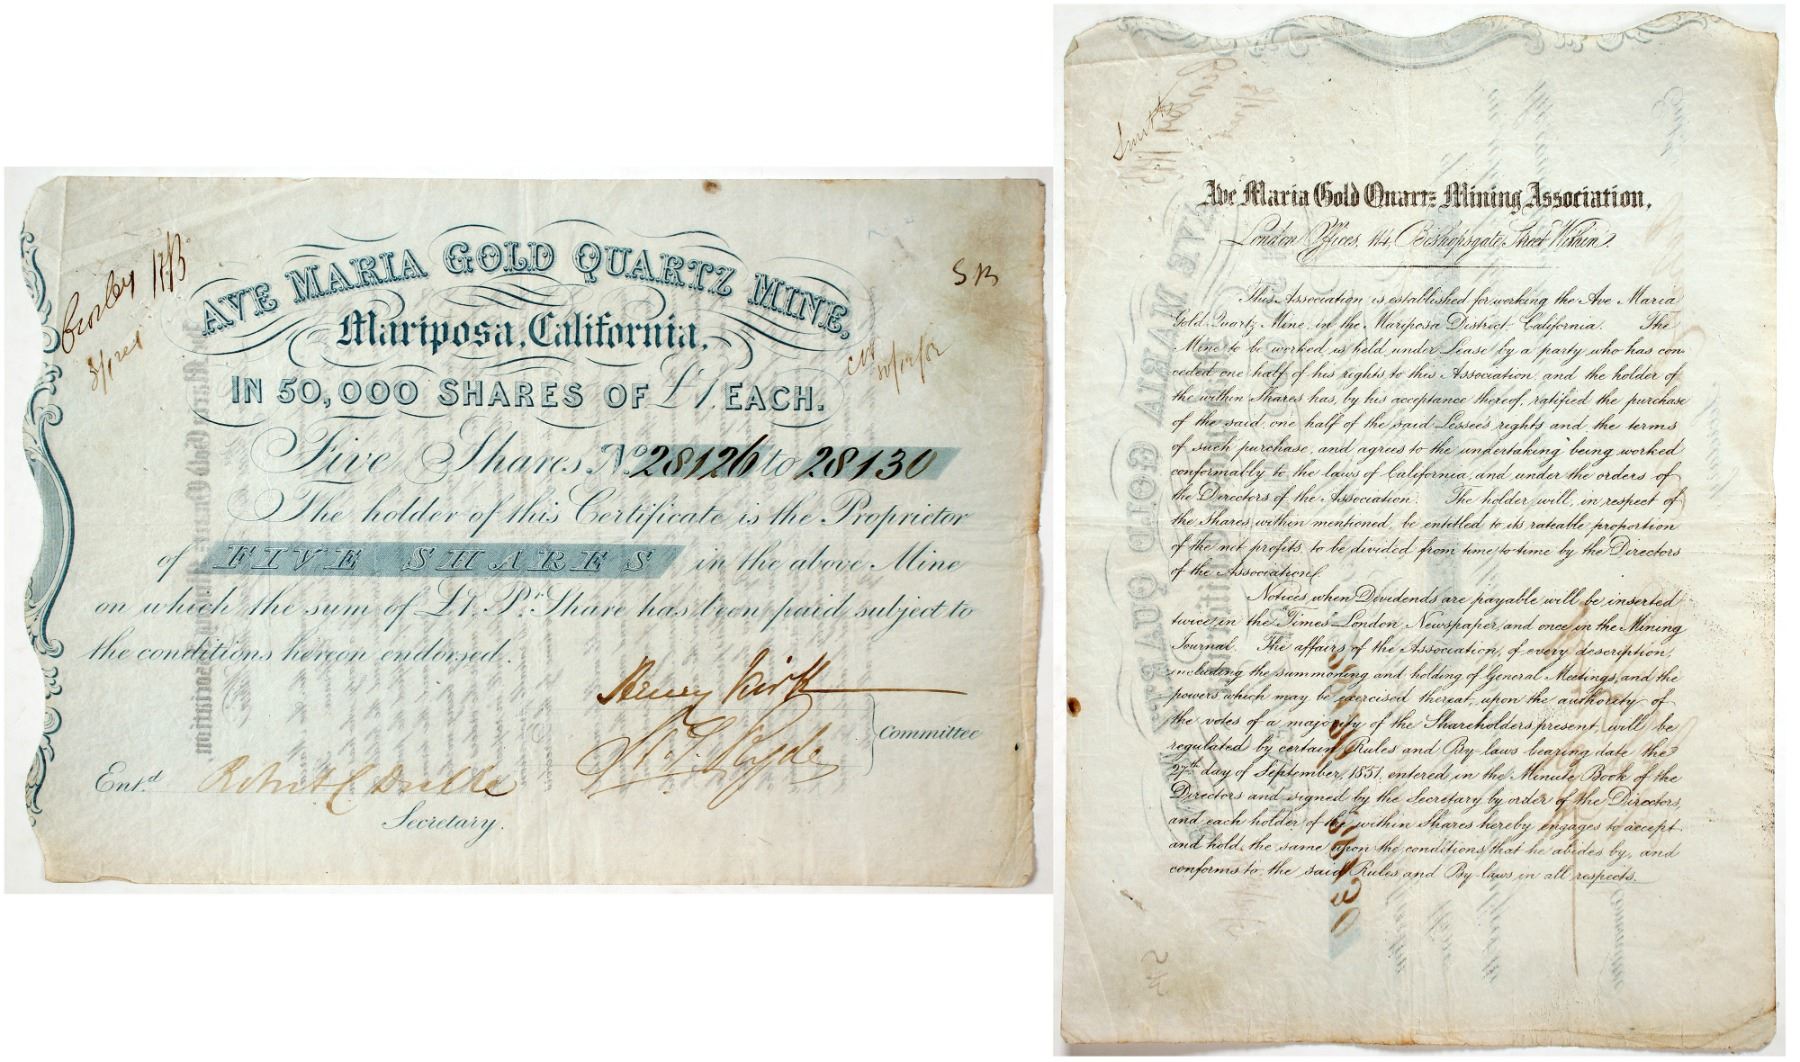 Crosley
AVE MARIA GOLD QUARTZ MINE,
Mariposa, California,
IN 50,000 SHARES OF £1. EACH.
Five Shares, No. 28126 to 28130
The holder of this Certificate is the Proprietor
of FIVE SHARES in the above Mine
on which the sum of £1. Pr. Share has been paid subject to
the conditions hereon endorsed.
Henry Kirk
Committee
Entd.
Secretary.
Smith
Ave Maria Gold Quartz Mining Association,
London Offices, 114, Bishopsgate Street Within.
This Association is established for working the Ave Maria
Gold Quartz Mine, in the Mariposa District, California. The
Mine to be worked is held under Lease by a party who has con-
ceded one half of his rights to this Association and the holder of
the within Shares has, by his acceptance thereof, ratified the purchase
of the said one half of the said Lessee's rights and the terms
of such purchase, and agrees to the undertaking being worked
conformably to the laws of California, and under the orders of
the Directors of the Association. The holder will, in respect of
the Shares within mentioned, be entitled to its rateable proportion
of the net profits, to be divided from time to time by the Directors
of the Association.
Notices when Dividends are payable will be inserted
twice in the "Times" London Newspaper, and once in the Mining
Journal. The affairs of the Association, of every description,
including the summoning and holding of General Meetings, and the
powers which may be exercised thereat, upon the authority of
the votes of a majority of the Shareholders present, will be
regulated by certain Rules and By-laws bearing date the
27th day of September, 1851, entered in the Minute Book of the
Directors and signed by the Secretary by order of the Directors,
and each holder of the within Shares hereby engages to accept
and hold the same upon the conditions that he abides by, and
conforms to the said Rules and By-laws in all respects.